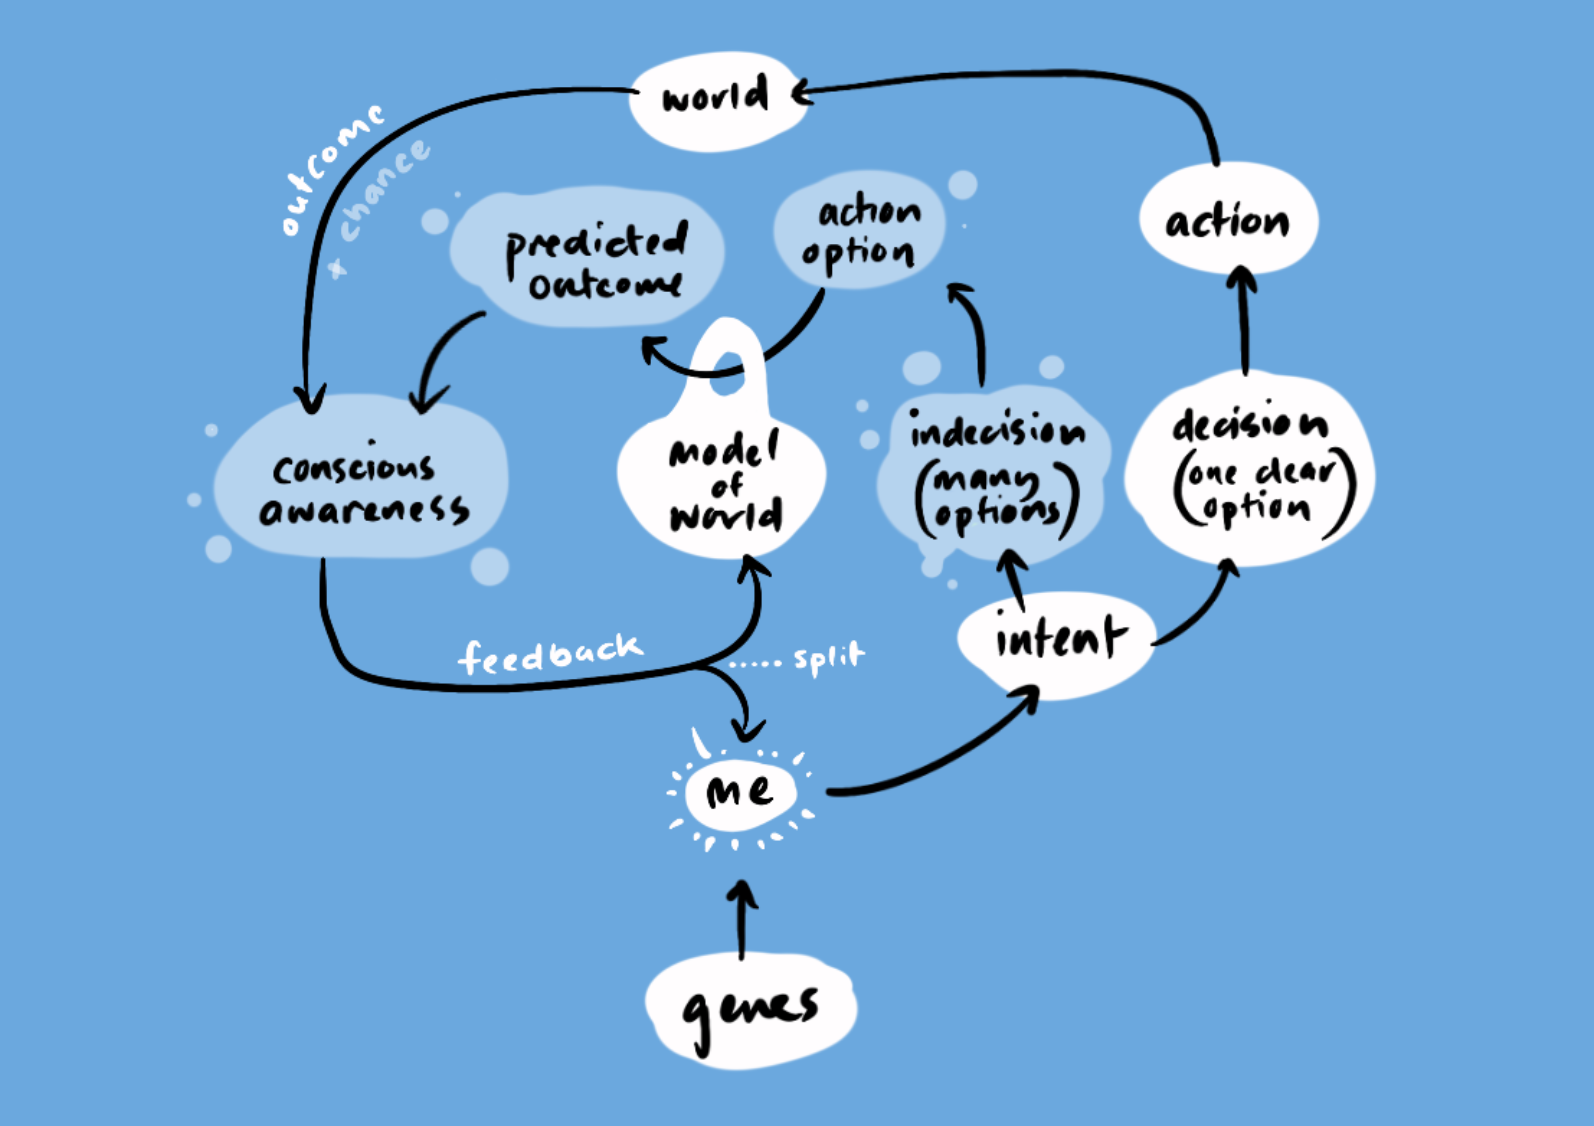 world
outcome
+ chance
predicted
outcome
action
option
action
conscious
awareness
model
of
world
indecision
(many
options)
decision
(one clear
option)
intent
feedback
..... split
me
genes